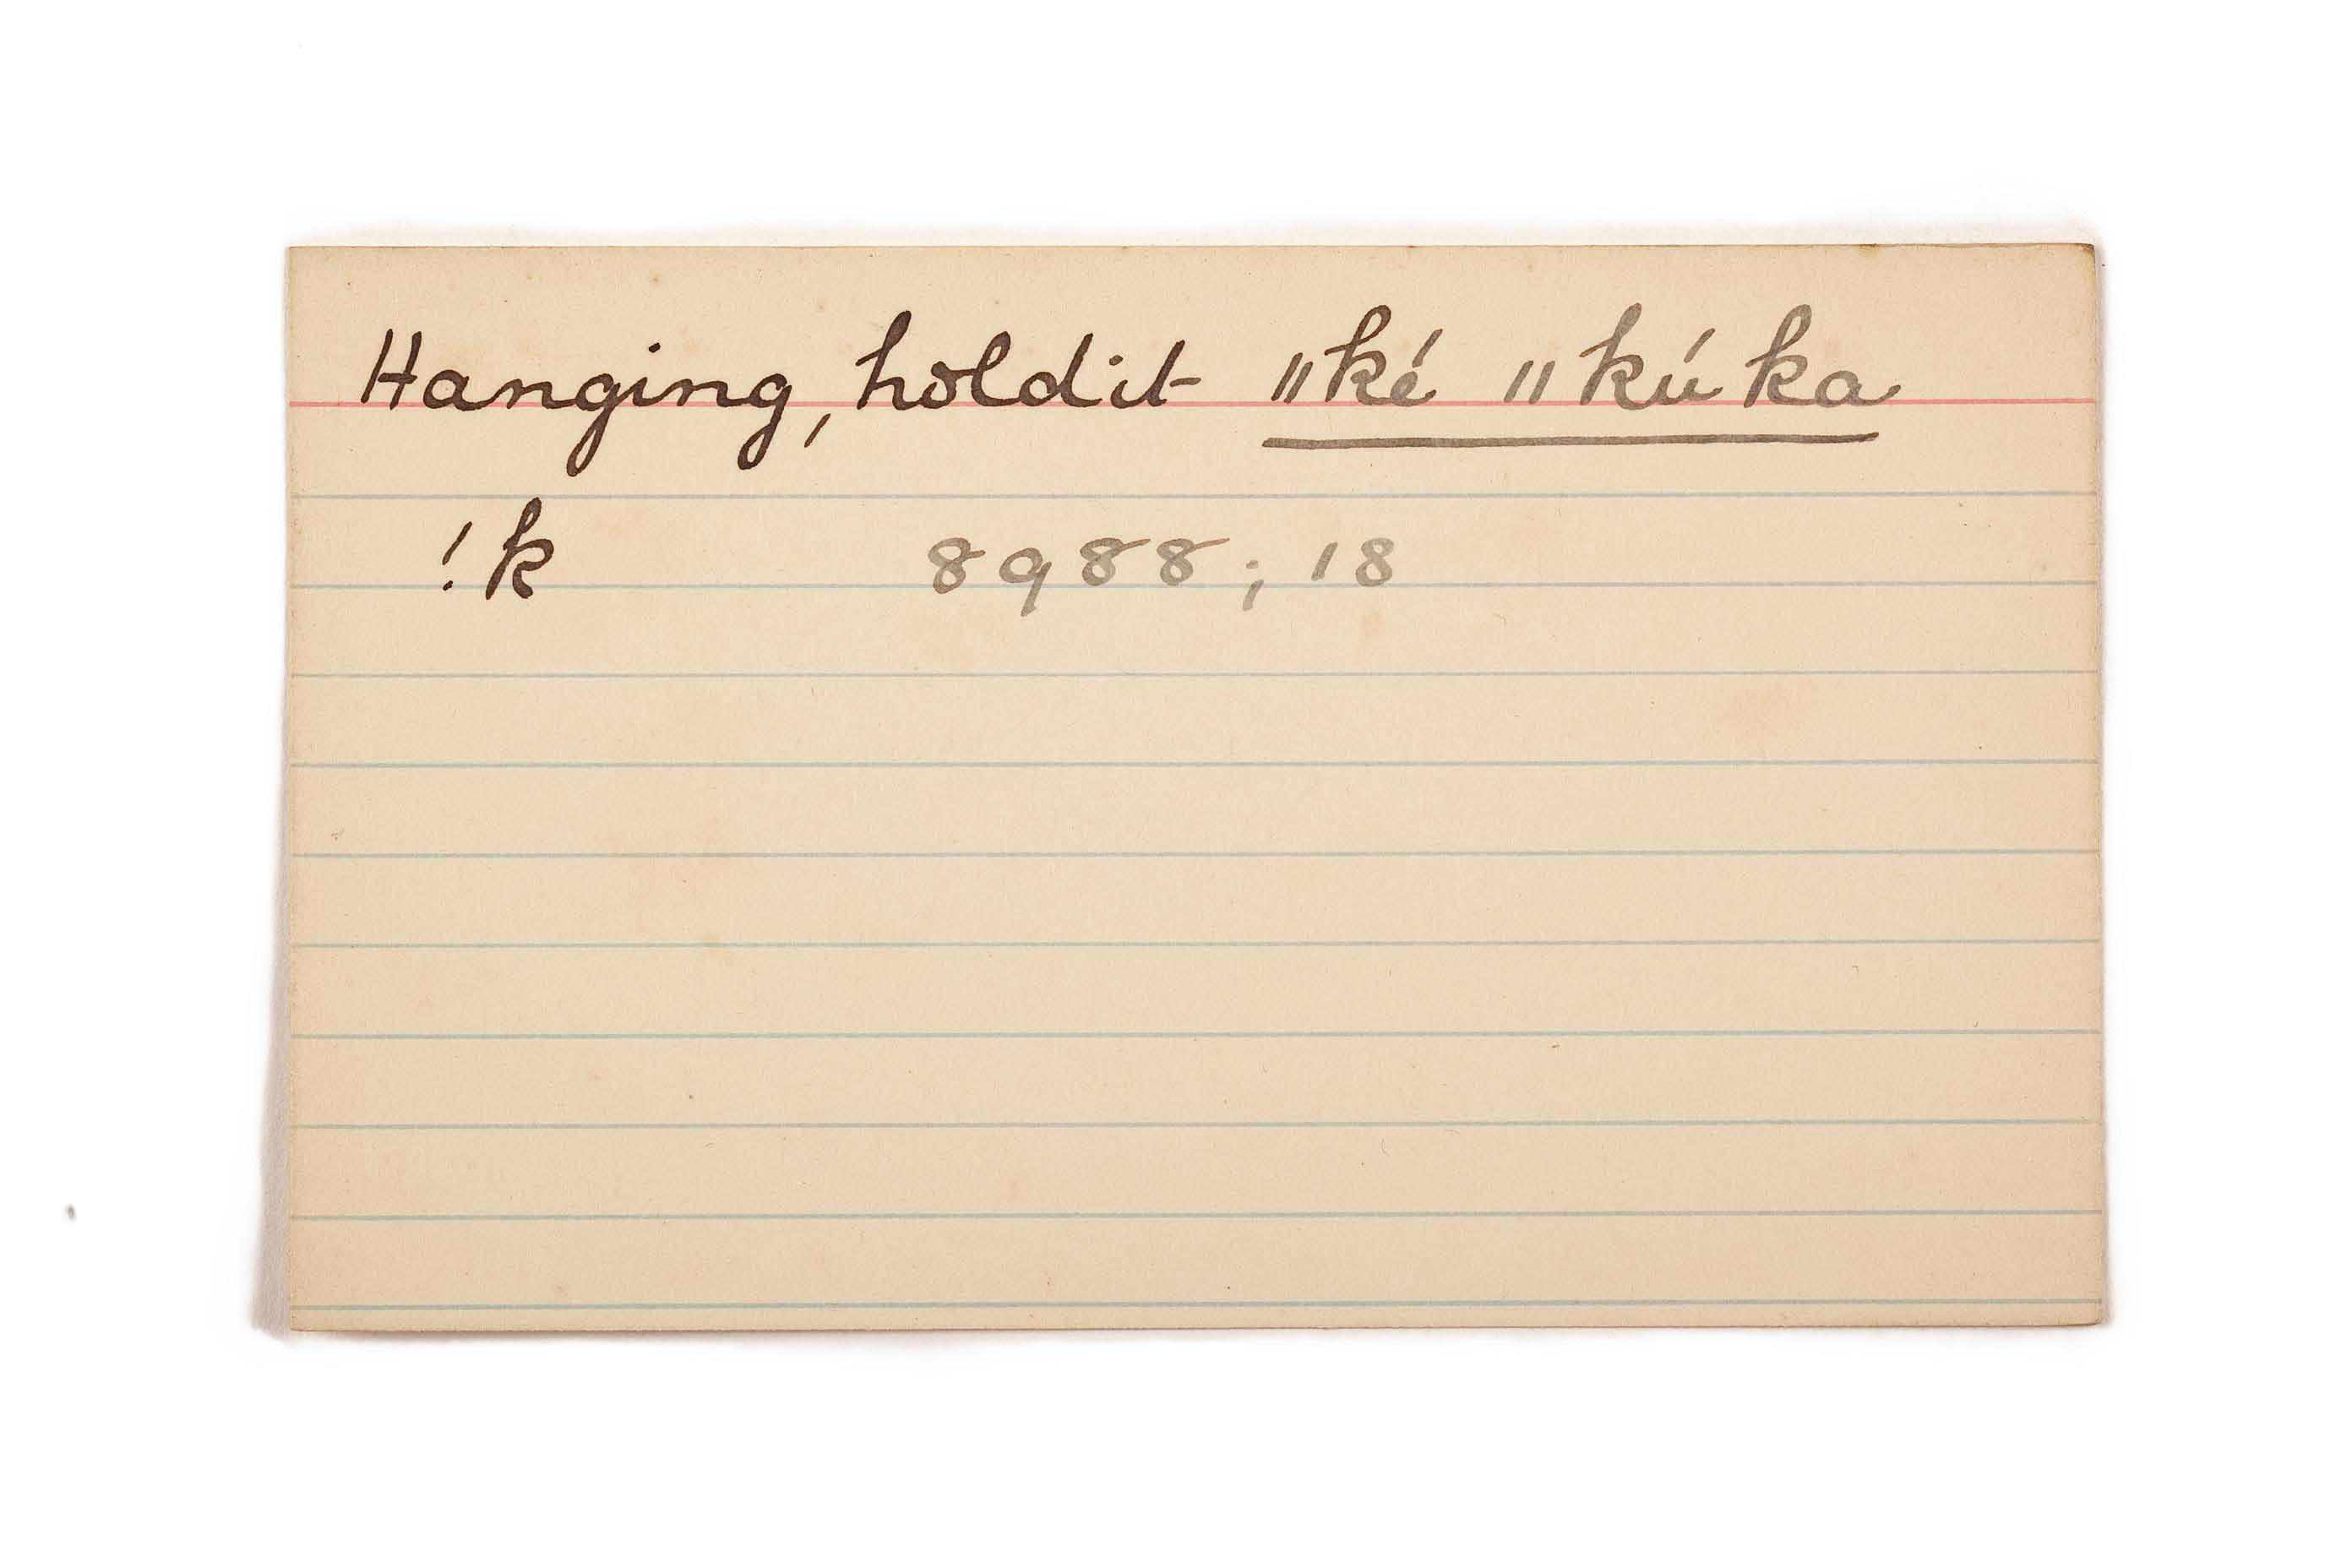 Hanging, hold it ǁké ǁkúka
!k 8988; 18